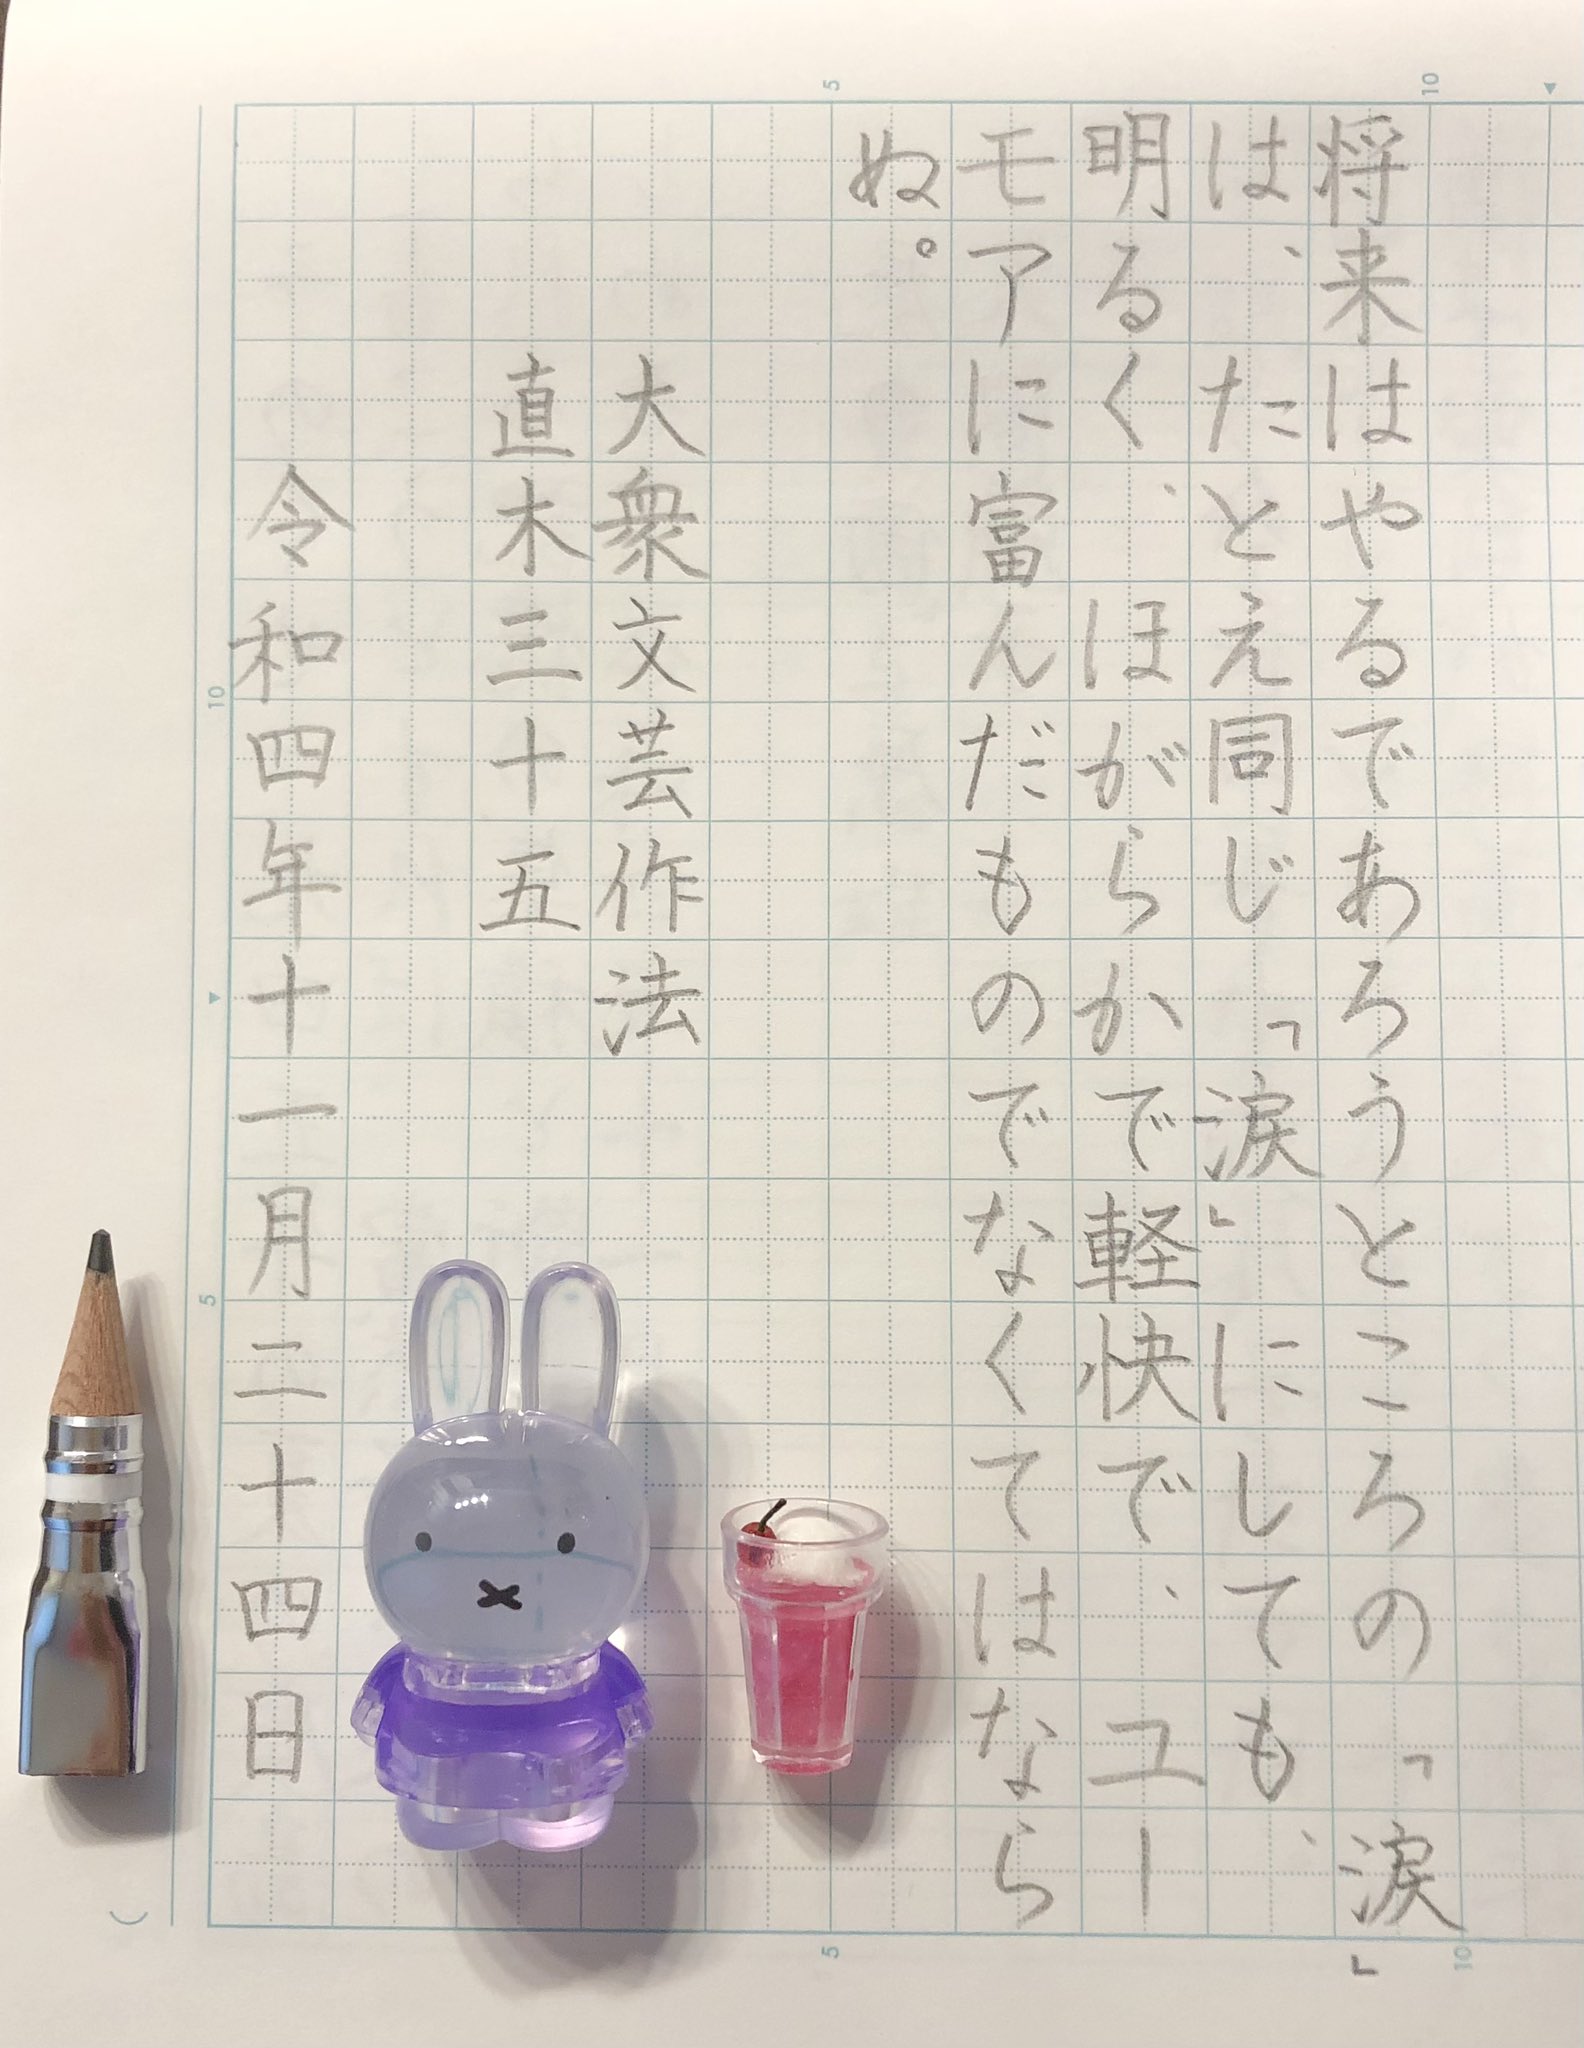 将来はやるであろうところの「涙」
は、たとえ同じ「涙」にしても、
明るく、ほがらかで軽快で、ユー
モアに富んだものでなくてはなら
ぬ。
大衆文芸作法
直木三十五
令和四年十一月二十四日
5
10
10
5
5
10